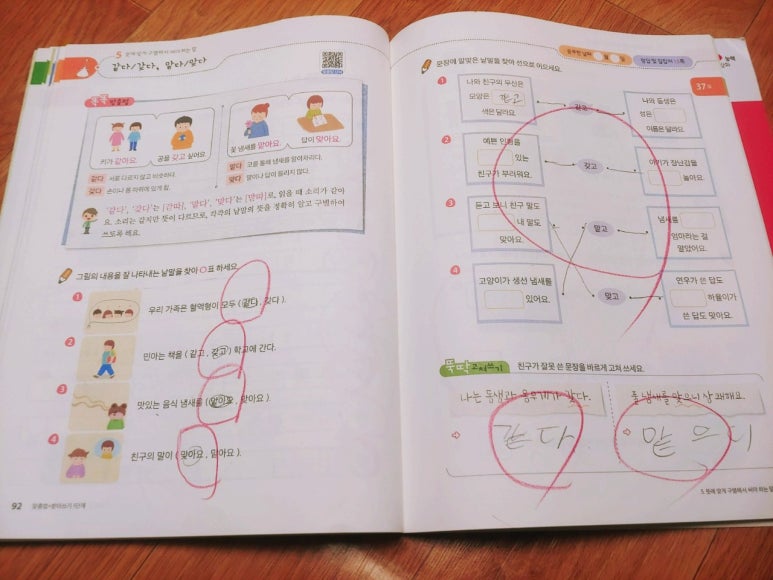 5 뜻에 맞게 구별해서 써야 하는 말
같다/갖다, 맡다/맞다
키가 같아요.
공을 갖고 싶어요.
꽃 냄새를 맡아요.
답이 맞아요.
같다 서로 다르지 않고 비슷하다.
갖다 손이나 몸 따위에 있게 함.
맡다 코를 통해 냄새를 알아차리다.
맞다 말이나 답이 틀리지 않다.
'같다', '갖다'는 [갇따], '맡다', '맞다'는 [맏따]로, 읽을 때 소리가 같아
요. 소리는 같지만 뜻이 다르므로, 각각의 낱말의 뜻을 정확히 알고 구별하여
쓰도록 해요.
그림의 내용을 잘 나타내는 낱말을 찾아 ○표 하세요.
1 우리 가족은 혈액형이 모두 ( 같다 , 갖다 ).
2 민아는 책을 ( 같고 , 갖고 ) 학교에 간다.
3 맛있는 음식 냄새를 ( 맡아요 , 맞아요 ).
4 친구의 말이 ( 맞아요 , 맡아요 ).
92 맞춤법+받아쓰기 1단계
문장에 알맞은 낱말을 찾아 선으로 이으세요.
공부한 날짜 월 일
정답 및 길잡이
37
1 나와 친구의 우산은
모양은 같고
색은 달라요.
같고
나와 동생은
성은
이름은 달라요.
2 예쁜 인형을
있는
친구가 부러워요.
갖고
아기가 장난감을
놀아요.
3 듣고 보니 친구 말도
내 말도
맞아요.
맡고
냄새를
엄마라는 걸
알았어요.
4 고양이가 생선 냄새를
있어요.
맞고
연우가 쓴 답도
하율이가
쓴 답도 맞아요.
뚝딱 고쳐쓰기
친구가 잘못 쓴 문장을 바르게 고쳐 쓰세요.
나는 동생과 몸무게가 갖다.
풀 냄새를 맞으니 상쾌해요.
같다
맡으니
5 뜻에 맞게 구별해서 써야 하는 말